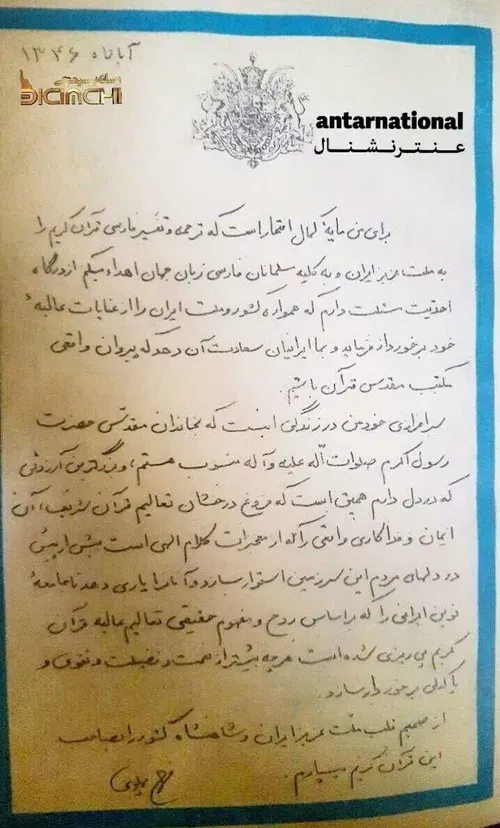 آبانماه ۱۳۴۶
رسانه سینمایی
DICINCHI
antarnational
عنترنشنال
برای من مایهٔ کمال افتخار است که ترجمه و تفسیر فارسی قرآن کریم را
به ملت عزیز ایران و به کلیه مسلمانان فارسی زبان جهان اهداء میکنم از درگاه
احدیت مسئلت دارم که همواره کشور و ملت ایران را از عنایات عالیهٔ
خود برخوردار فرماید و بما ایرانیان سعادت آن دهد که پیروان واقعی
مکتب مقدس قرآن باشیم.
سرافرازی خود من در زندگی اینست که بخاندان مقدس حضرت
رسول اکرم صلوات الله علیه و آله منسوب هستم، و بزرگترین آرزوئی
که در دل دارم همین است که فروغ درخشان تعالیم قرآن شریف، آن
ایمان و فداکاری واقعی را که از معجزات کلام الهی است بیش از پیش
در دلهای مردم این سرزمین استوار سازد و آنانرا یاری دهد تا جامعهٔ
نوین ایرانی را که بر اساس روح و مفهوم حقیقی تعالیم عالیه قرآن
کریم پی ریزی شده است هر چه بیشتر از عصمت و فضیلت و تقوی و
پاکدلی برخوردار سازد.
از صمیم قلب ملت عزیز ایران و شاهنشاه کشور را بصاحب
این قرآن کریم میسپارم.
فرح پهلوی